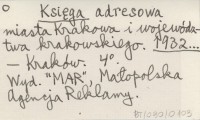 Księga adresowa
miasta Krakowa i wojewódz-
twa krakowskiego. 1932...
— Kraków. 4°.
Wyd. "MAR". Małopolska
Agencja Reklamy.